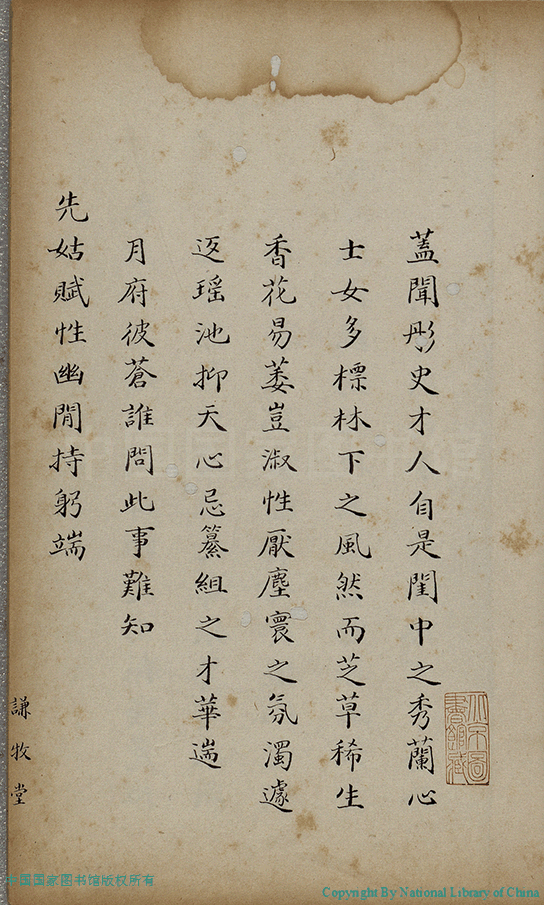 蓋聞彤史才人自是閨中之秀蘭心
士女多標林下之風然而芝草稀生
香花易萎豈淑性厭塵寰之氛濁遽
返瑶池抑天心忌纂組之才華遄
月府彼蒼誰問此事難知
先姑賦性幽閒持躬端
謙牧堂
北京圖
書館藏
中国国家图书馆版权所有
Copyright By National Library of China